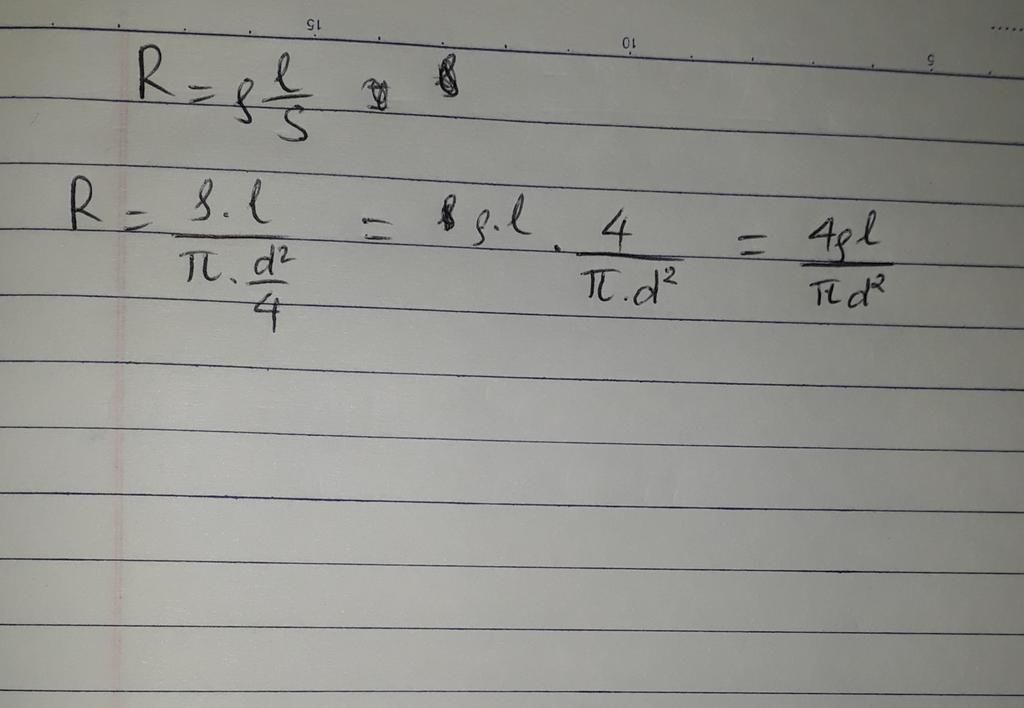 15 10 5
R = ρ l/S
R = ρ.l / π.d²/4 = ρ.l . 4/π.d² = 4ρl/πd²